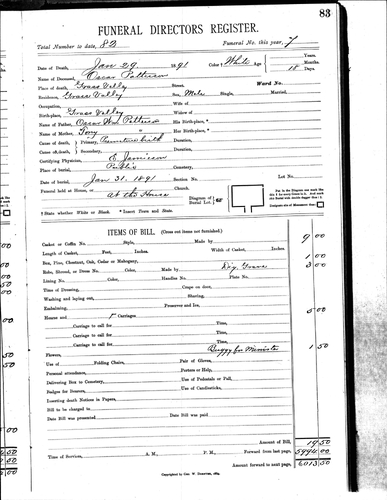 83
FUNERAL DIRECTORS REGISTER.
Total Number to date, 82 Funeral No. this year, 7
Date of Death, Jan 29 1891 Color † White Age Years. Months. 18 Days
Name of Deceased, Oscar
Place of death, Grass Valley Street, Ward No.
Residence, Grass Valley Sex, Male Single, Married,
Occupation, Wife of
Birth-place, Grass Valley Widow of
Name of Father, Oscar Wm His Birth-place, *
Name of Mother, Her Birth-place, *
Cause of death, Primary, Premature birth Duration,
Cause of death, Secondary, Duration,
Certifying Physician, E. Jamieson
Place of burial, Public Cemetery,
Date of burial, Jan 31. 1891 Section No. Lot No.
Funeral held at House, Church.
at the House Diagram of Burial Lot.
† State whether White or Black. * Insert Town and State.
ITEMS OF BILL. (Cross out items not furnished.)
Casket or Coffin No. Style, Made by 9 00
Length of Casket, Feet, Inches. Width of Casket, Inches.
Box, Pine, Chestnut, Oak, Cedar or Mahogany, 1 00
Robe, Shroud, or Dress No. Color, Made by Dig Grave 3 00
Lining No. Color, Handles No. Plate No.
Time of Dressing, Crape on door,
Washing and laying out, Shaving,
Embalming, Preserve and Ice,
Hearse and Carriages 5 00
Carriage to call for Time,
Carriage to call for Time,
Carriage to call for Time,
Carriage to call for Time,
Flowers, Buggy for Minister 1 50
Use of Folding Chairs, Pair of Gloves,
Personal attendance, Porters or Help,
Delivering Box to Cemetery, Use of Pedestals or Pall,
Badges for Bearers, Use of Candlesticks,
Inserting death Notices in Papers,
Bill to be charged to
Date Bill was presented Date Bill was paid
Amount of Bill, 19 50
Time of Services, A. M., P. M. Forward from last page, 5994 00
Amount forward to next page, 6013 50